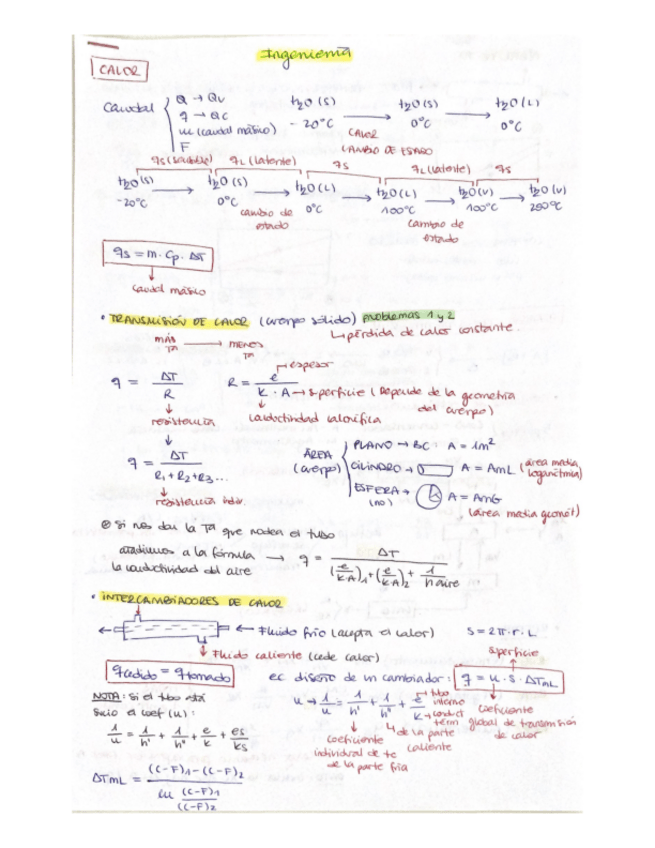 Ingeniería
CALOR
Caudal
Q → Qv
q → Qc
m (caudal másico)
F
H2O (S) → H2O (S) → H2O (L)
- 20°C 0°C 0°C
CALOR
CAMBIO DE ESTADO
qs (sensible) qL (latente) qs qL (latente) qs
H2O (S) → H2O (S) → H2O (L) → H2O (L) → H2O (V) → H2O (V)
-20°C 0°C 0°C 100°C 100°C 250°C
cambio de estado
cambio de estado
qs = m · Cp · ΔT
caudal másico
• TRANSMISIÓN DE CALOR (cuerpo sólido) problemas 1 y 2
↳ pérdida de calor constante.
MÁS Tª → MENOS Tª
q = ΔT / R
R = e / K · A
espesor
superficie (Depende de la geometría del cuerpo)
resistencia
conductividad calorífica
q = ΔT / R1 + R2 + R3 ...
resistencia indiv.
ÁREA (cuerpo)
PLANO → BC · A = 1m²
CILINDRO → A = AmL (área media logarítmia)
ESFERA → (no) A = AmG (área media geomét)
Si nos dan la Tª que rodea el tubo
añadimos a la fórmula → q = ΔT / (e/K·A)1 + (e/K·A)2 + 1/h aire
la conductividad del aire
• INTERCAMBIADORES DE CALOR
← Fluido frío (acepta el calor) S = 2π · r · L
Fluido caliente (cede calor) superficie
qcedido = qtomado
ec diseño de un cambiador: q = u · S · ΔTmL
NOTA: Si el tubo está
sucio el coef (u):
1/u = 1/h' + 1/h'' + e/k + es/ks
u → 1/u = 1/h' + 1/h'' + e/K
tubo interno
conduct térm
coeficiente individual de tc de la parte fria
↳ de la parte caliente
coeficiente global de transmisión de calor
ΔTmL = (C-F)1 - (C-F)2 / ln (C-F)1 / (C-F)2